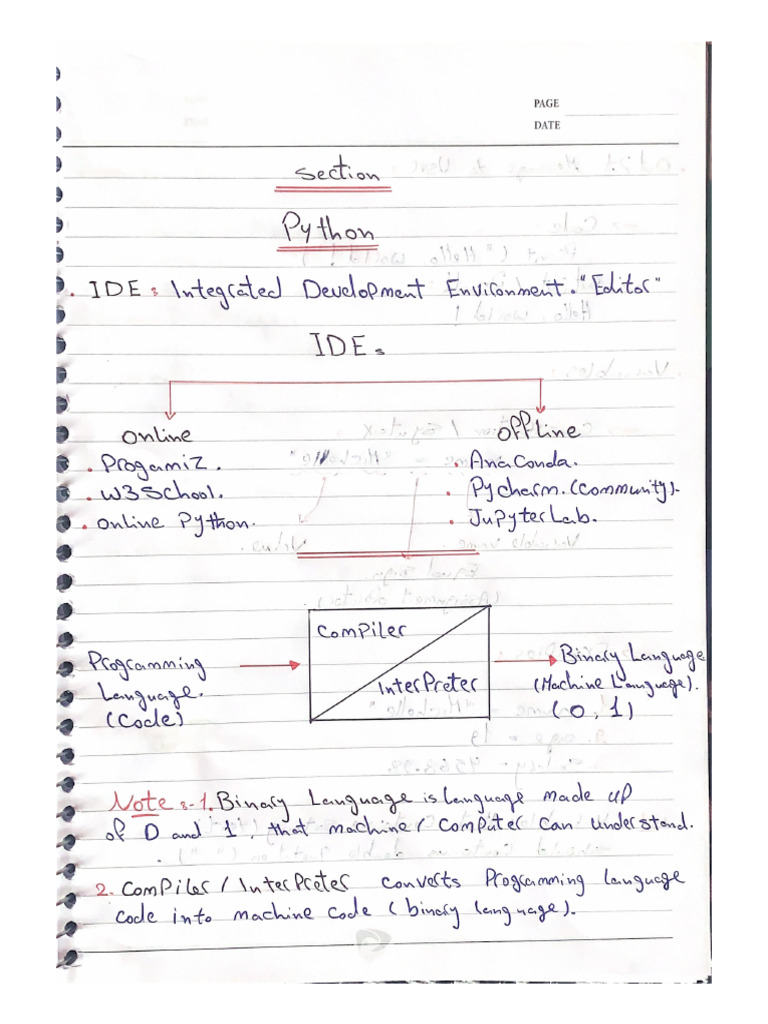 PAGE
DATE
section
Python
. IDE: Integrated Development Environment. "Editor"
IDE:
online
offline
. ProgamiZ.
. AnaConda.
. W3School.
. Pycharm.(Community).
. online Python.
. JupyterLab.
Compiler
Programming
Language.
(Code)
InterPreter
Binary Language
(Machine Language).
(0,1)
Note:-1. Binary Language is Language made up
of 0 and 1, that machine/ Computer can understand.
2. Compiler / InterPreter converts Programming language
code into machine code (binary language).